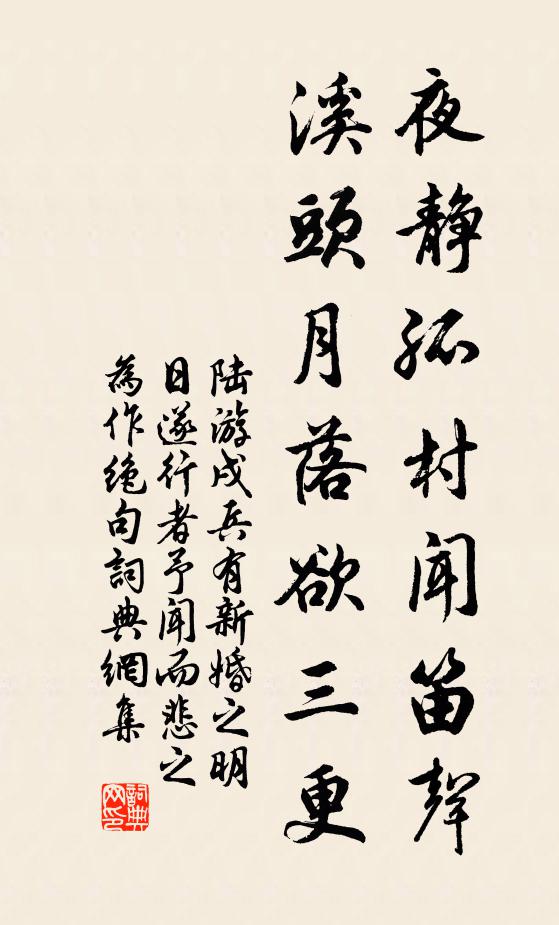 夜静孤村闻笛聲
溪頭月落欲三更
陆游戍兵有新婚之明
日遂行者予闻而悲之
為作絶句詞典網集
詞典网印